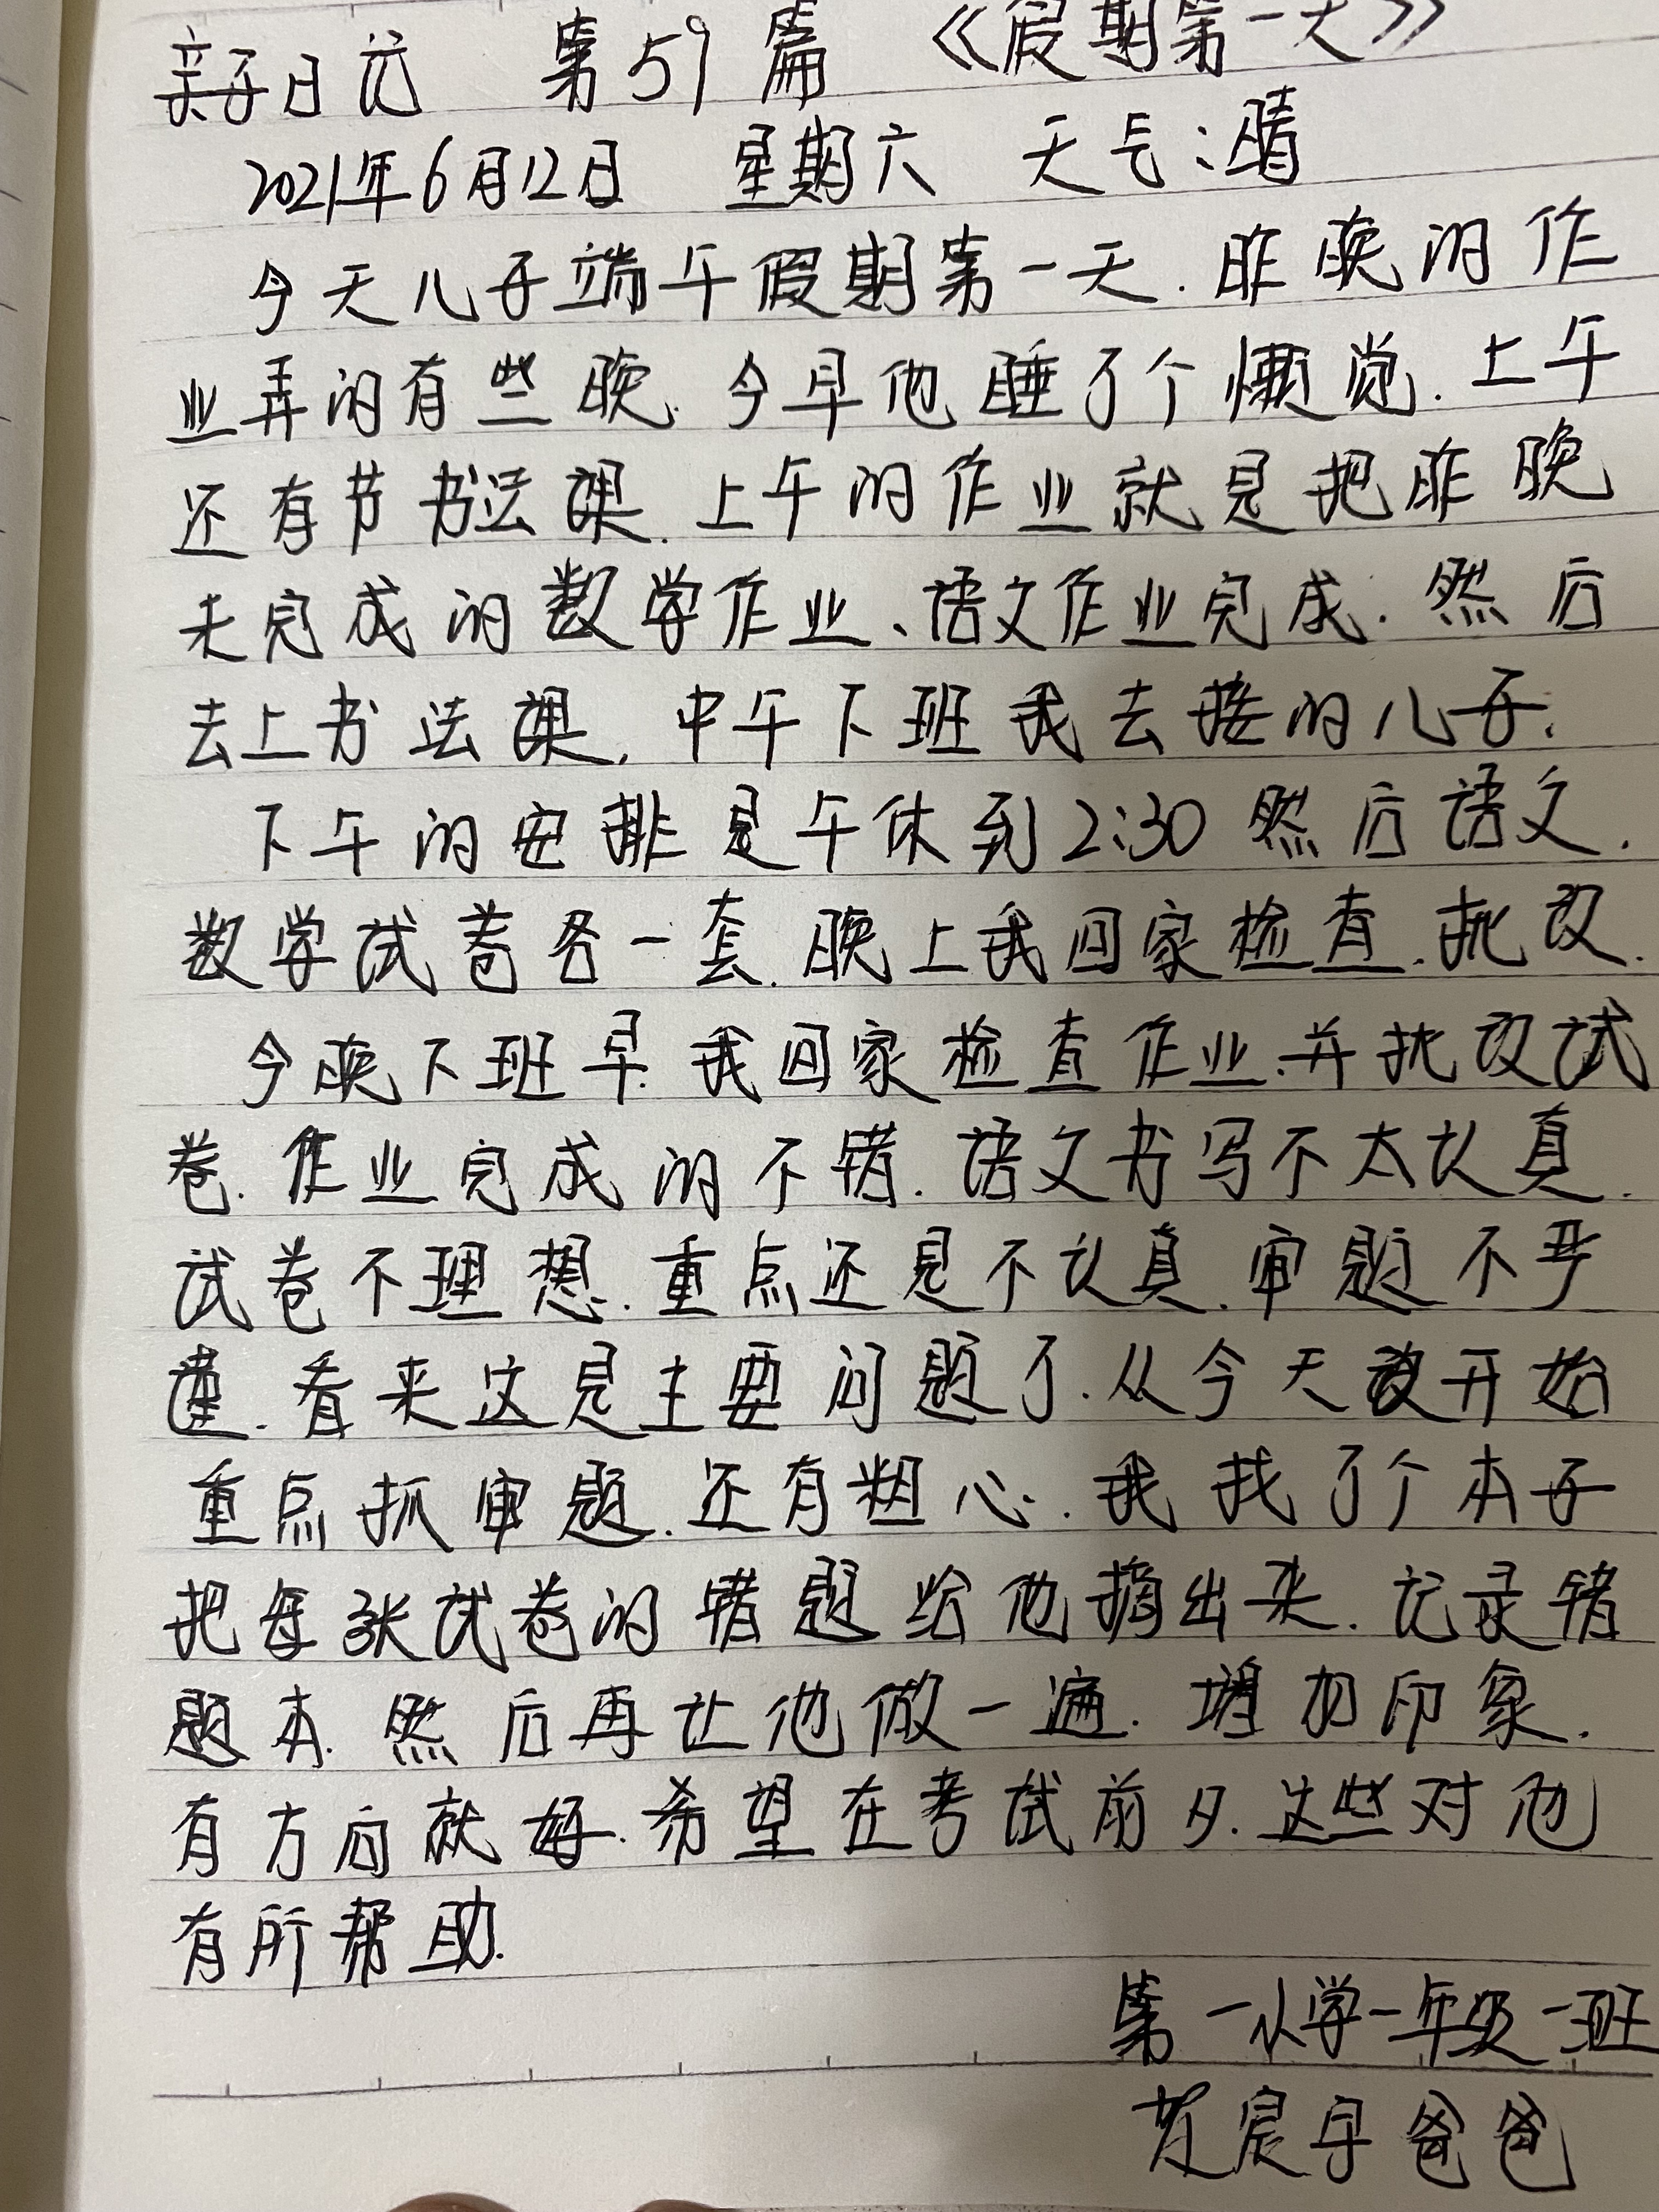 亲子日记 第59篇 《假期第一天》
2021年6月12日 星期六 天气:晴
今天儿子端午假期第一天.昨晚的作
业弄的有些晚.今早他睡了个懒觉.上午
还有节书法课.上午的作业就是把昨晚
未完成的数学作业、语文作业完成.然后
去上书法课.中午下班我去接的儿子.
下午的安排是午休到2:30然后语文.
数学试卷各一套.晚上我回家检查.批改.
今晚下班早.我回家检查作业.并批改试
卷.作业完成的不错.语文书写不太认真.
试卷不理想.重点还是不认真.审题不严
谨.看来这是主要问题了.从今天改开始
重点抓审题.还有粗心.我找了个本子
把每张试卷的错题给他摘出来.记录错
题本.然后再让他做一遍.增加印象.
有方向就好.希望在考试前夕.这些对他
有所帮助.
第一小学一年级一班
晨宇爸爸